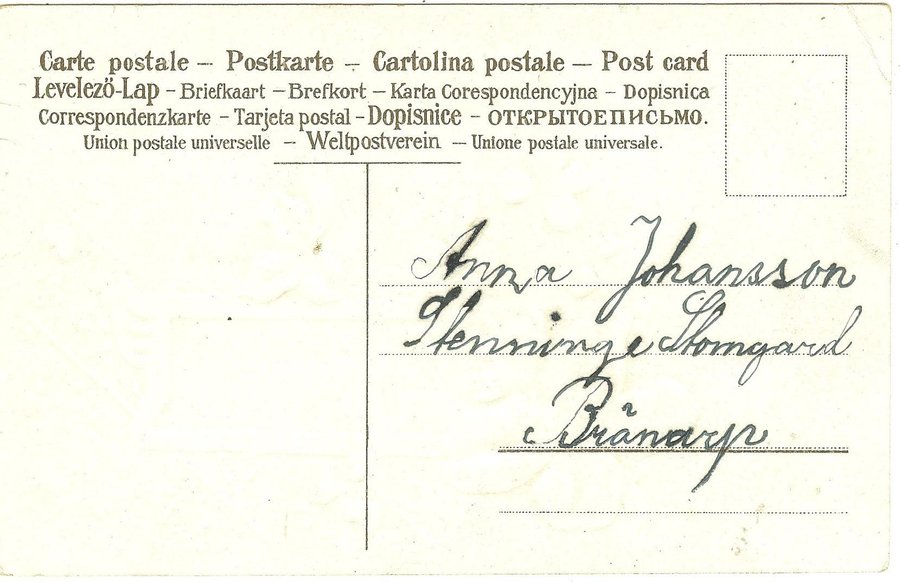 Carte postale – Postkarte – Cartolina postale – Post card
Levelező-Lap – Briefkaart – Brefkort – Karta Corespondencyjna – Dopisnica
Correspondenzkarte – Tarjeta postal – Dopisnice – ОТКРЫТОЕ ПИСЬМО.
Union postale universelle – Weltpostverein – Unione postale universale.
Anna Johansson
Stenninge Stomgard
Brånarp